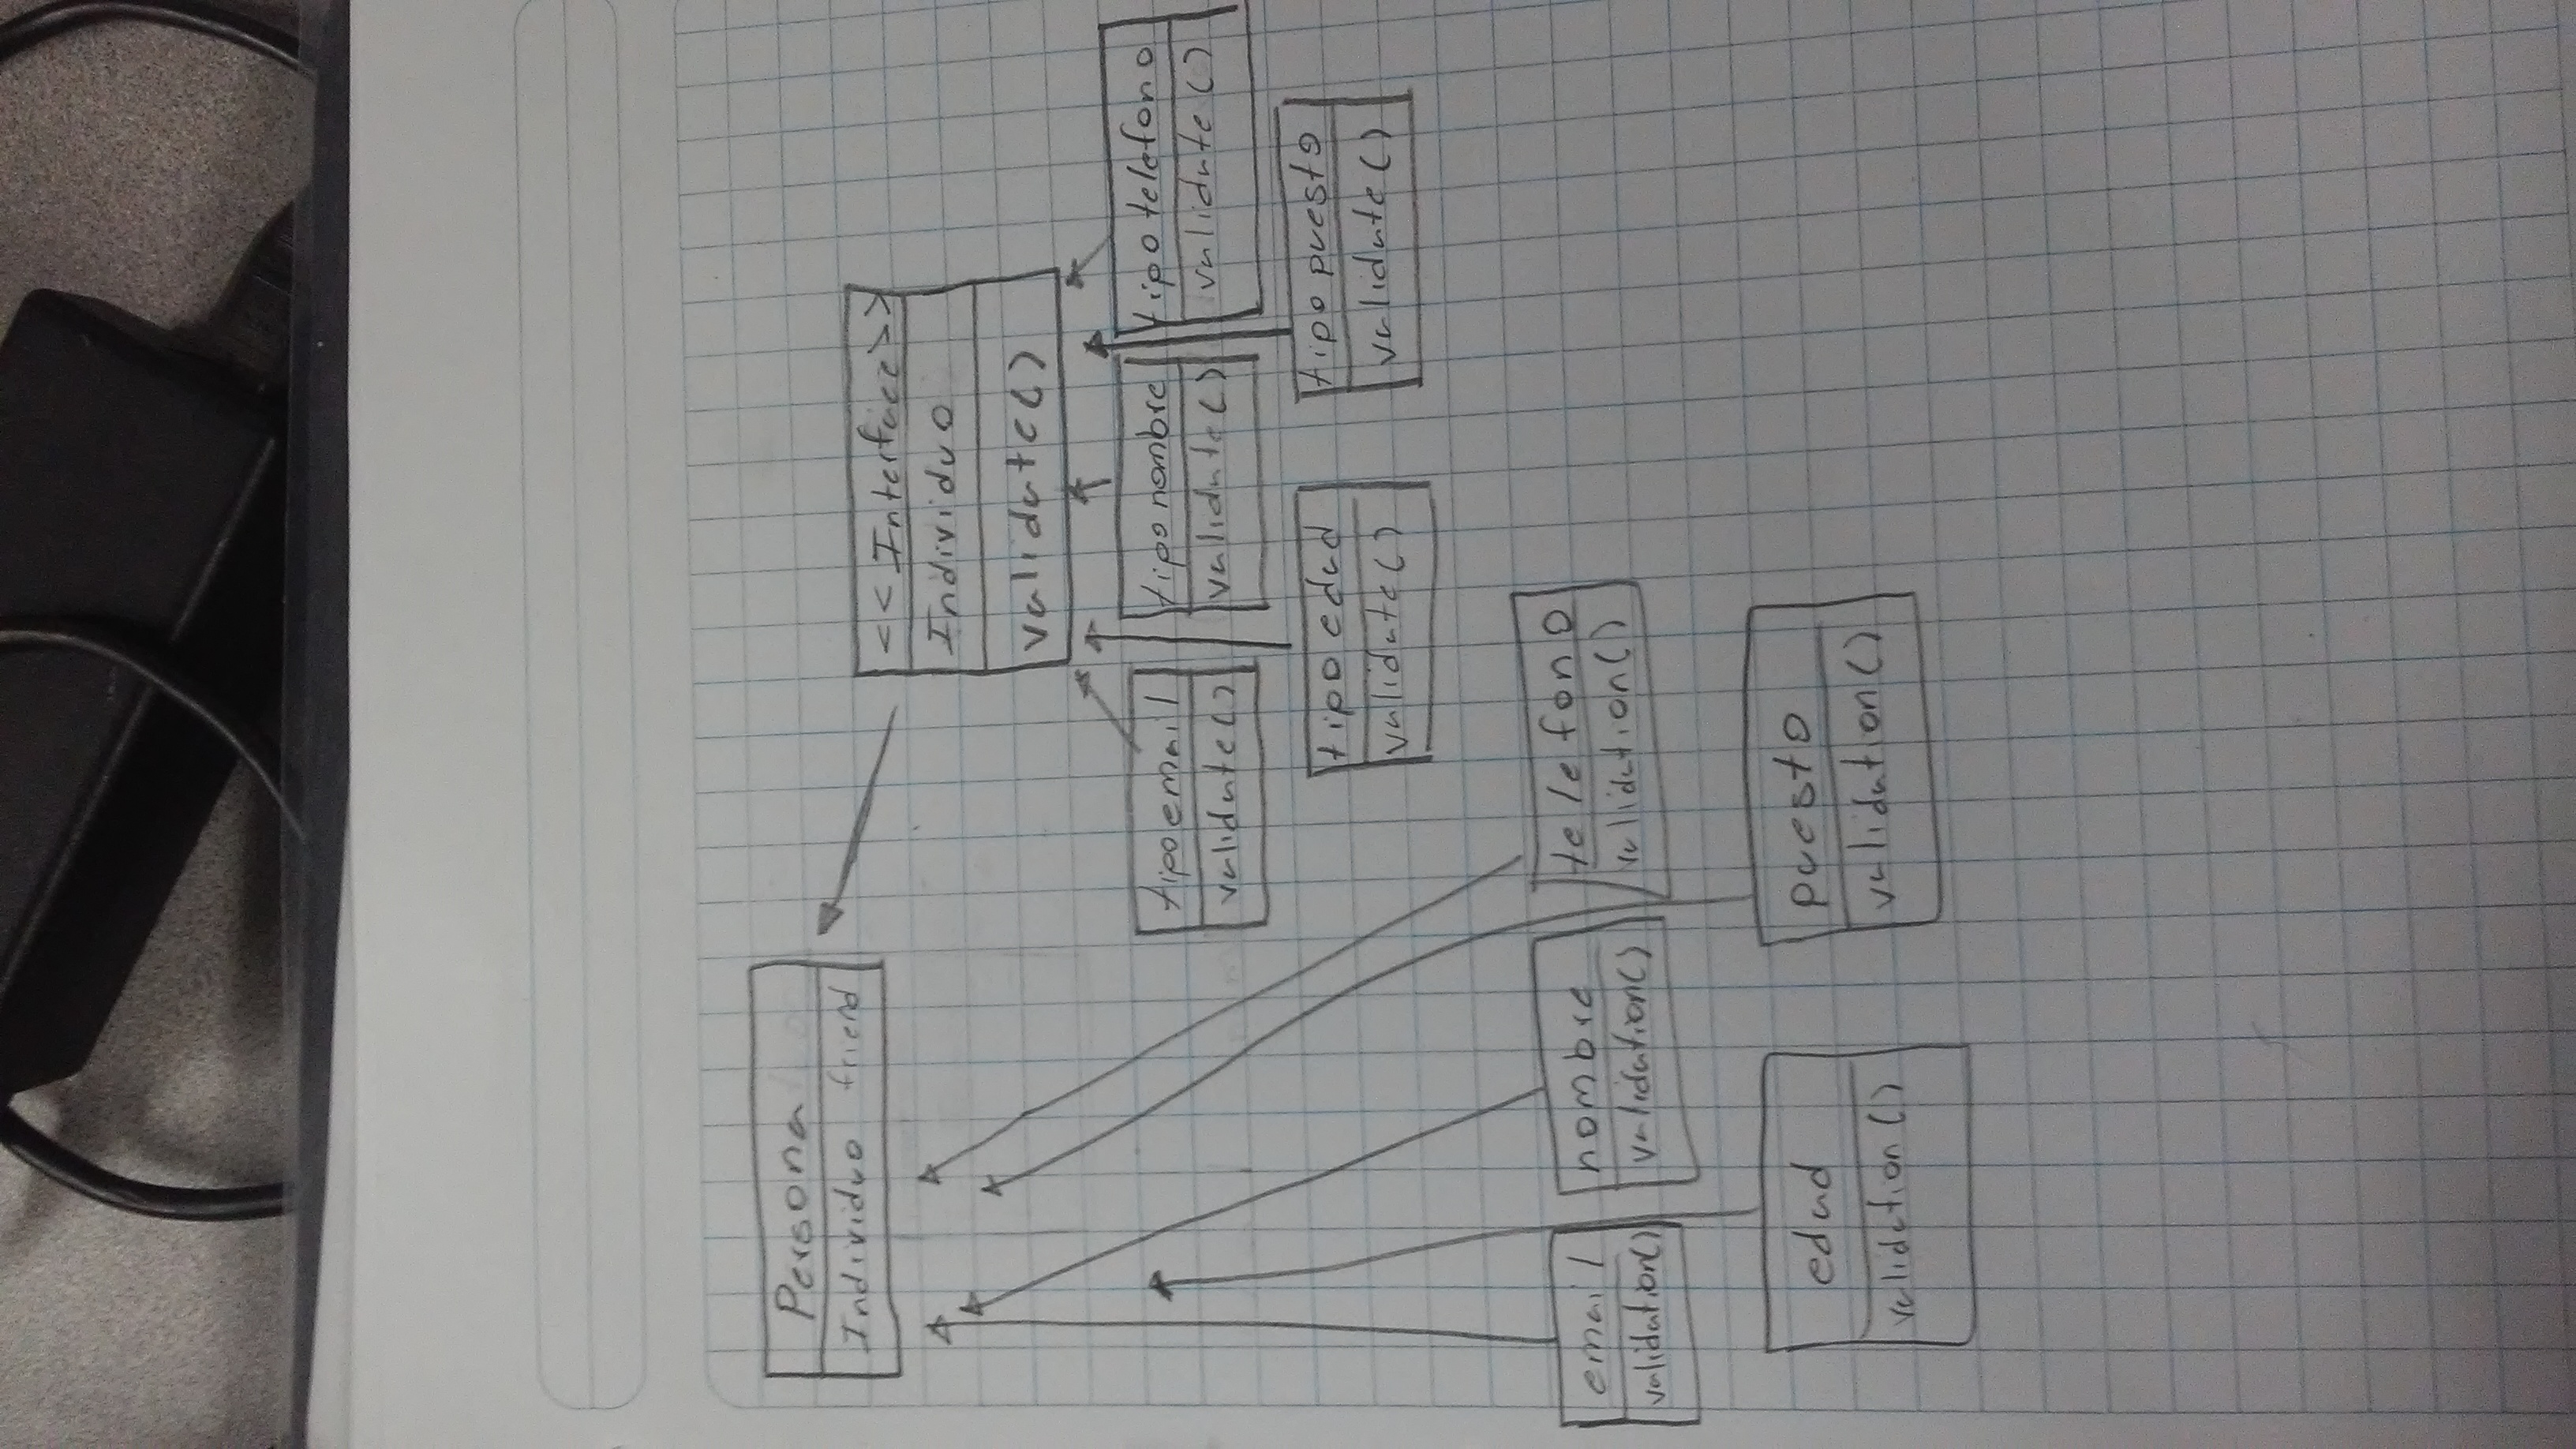 Persona
Individuo friend
<<Interface>>
Individuo
validate()
tipo email
validate()
tipo nombre
validate()
tipo telefono
validate()
tipo edad
validate()
tipo puesto
validate()
email
validation()
nombre
validation()
telefono
validation()
edad
validation()
puesto
validation()